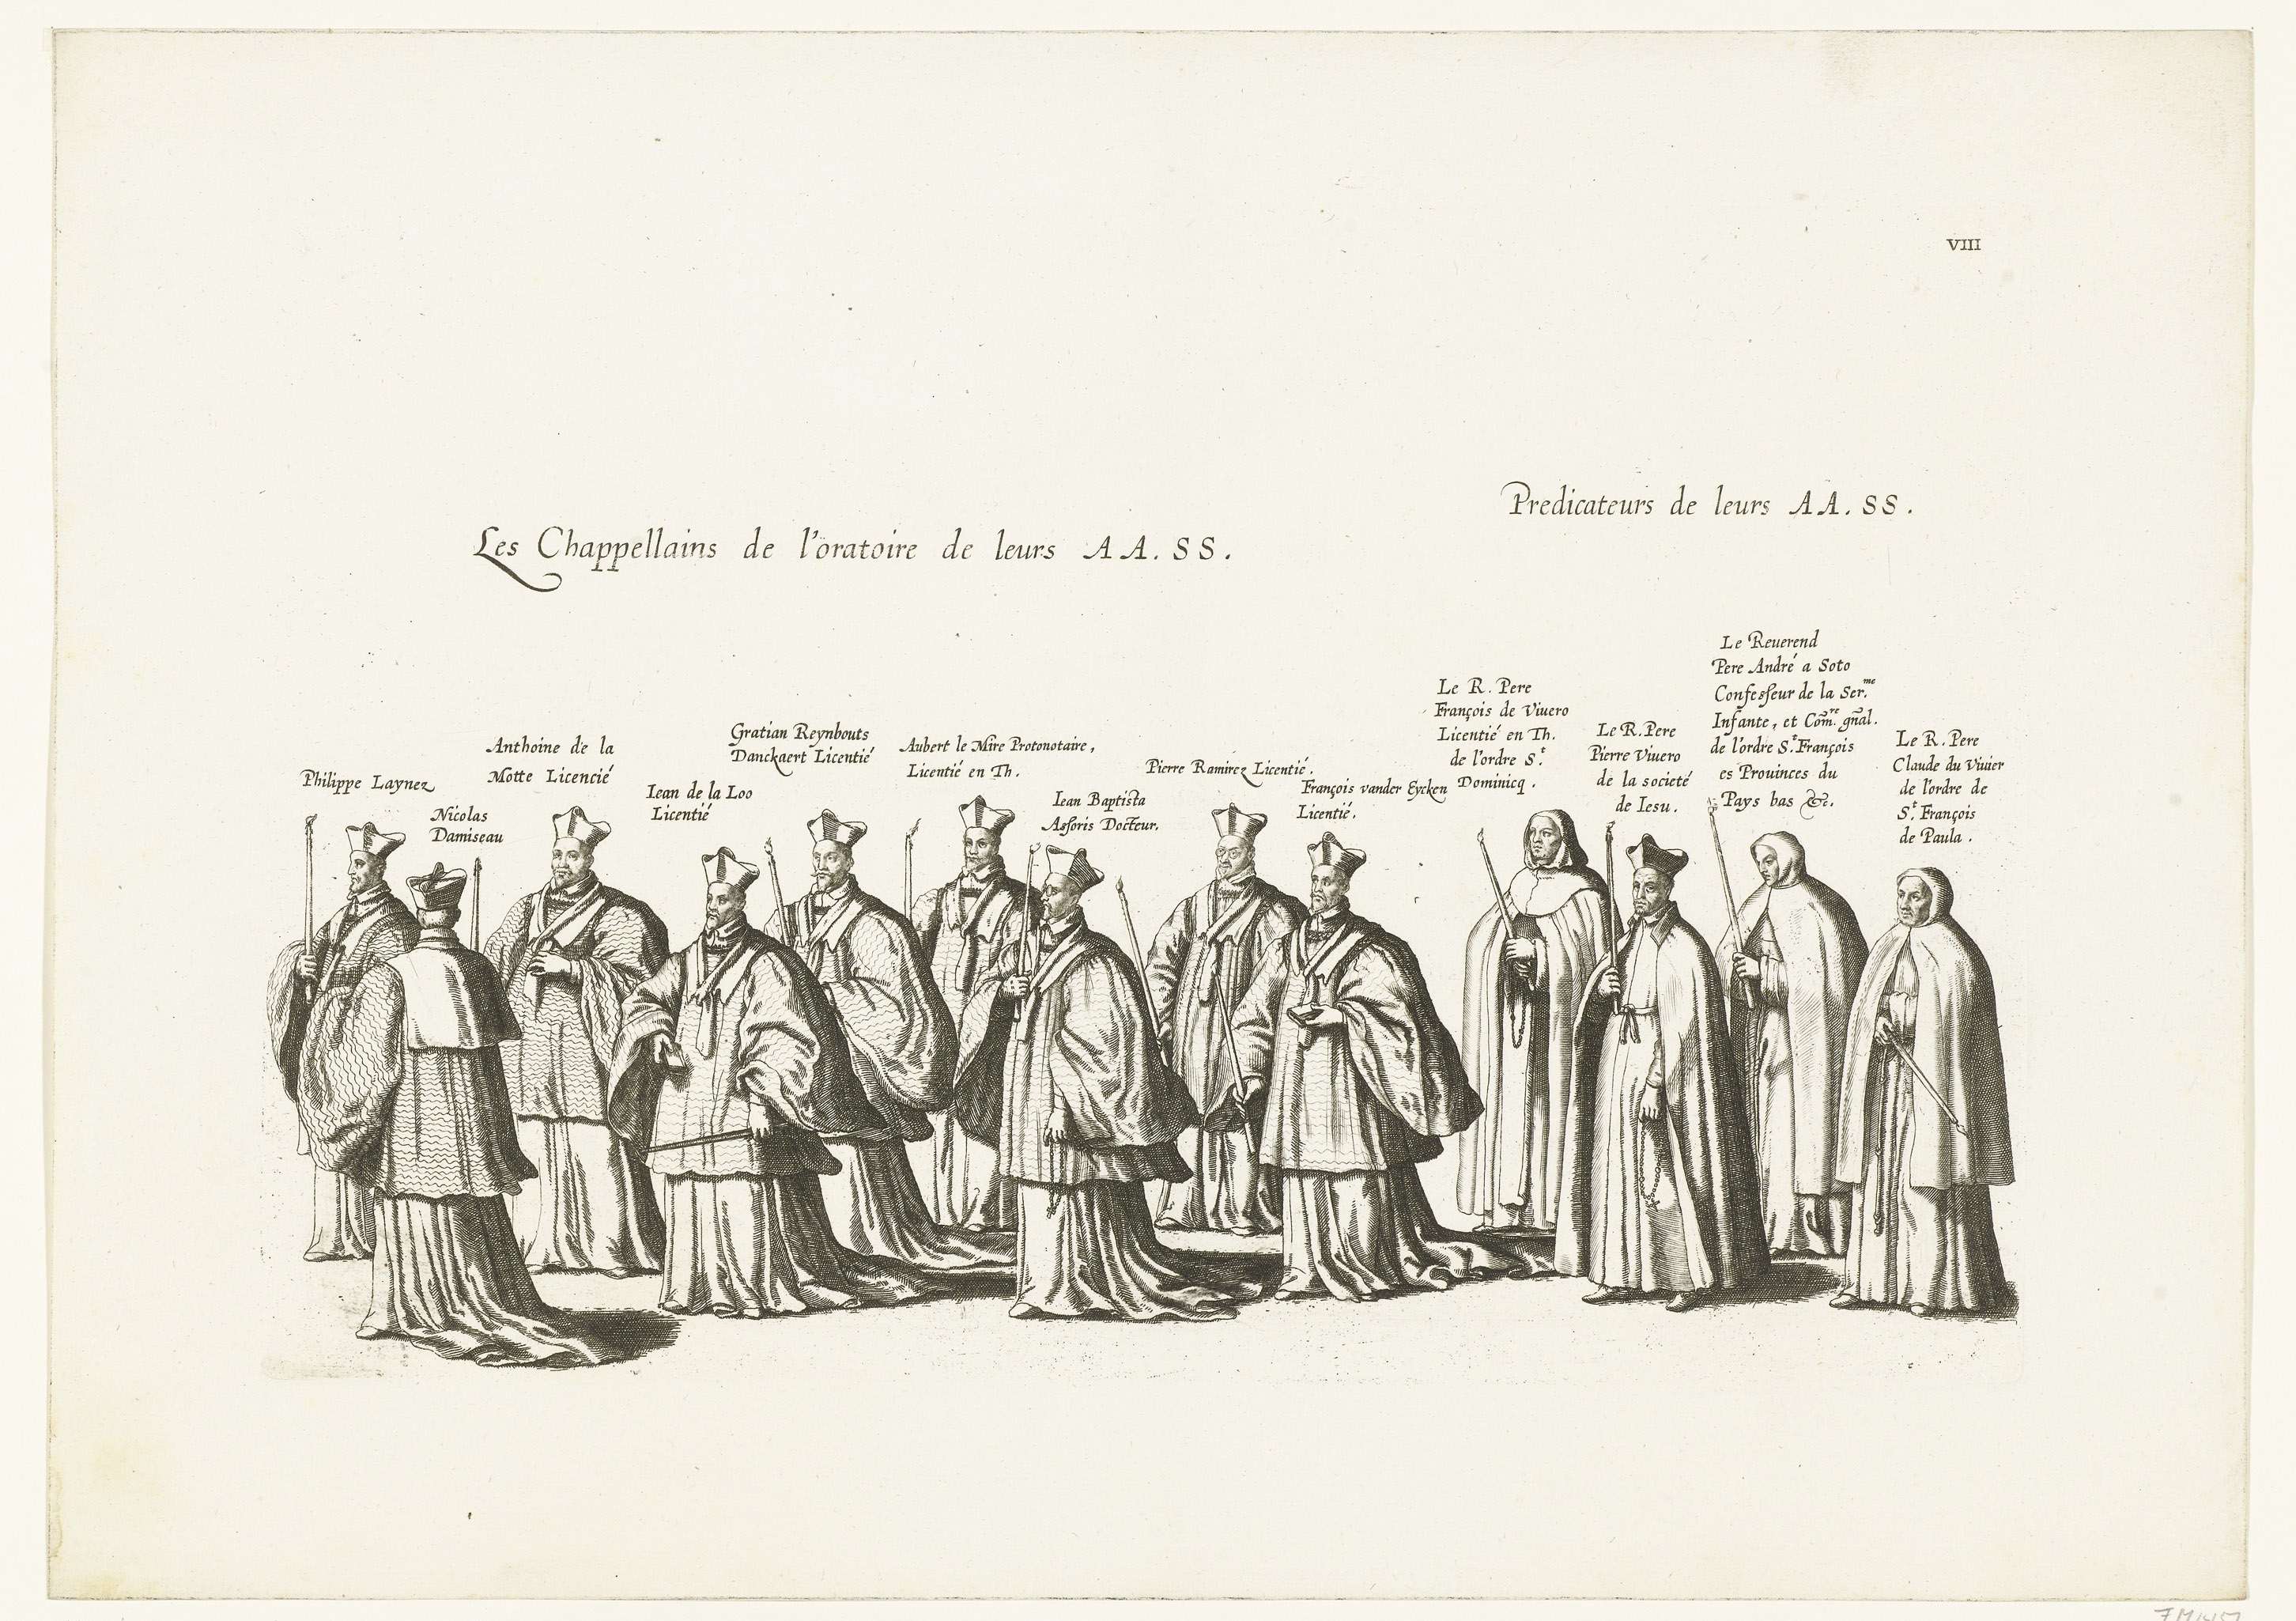 VIII
Predicateurs de leurs AA. SS.
Les Chappellains de l'oratoire de leurs AA. SS.
Philippe Laynez
Nicolas
Damiseau
Anthoine de la
Motte Licencié
Iean de la Loo
Licentié
Gratian Reynbouts
Danckaert Licentié
Aubert le Mire Protonotaire,
Licentié en Th.
Iean Baptista
Assoris Docteur.
Pierre Ramirez Licentié.
François vander Eycken
Licentié.
Le R. Pere
François de Viuero
Licentié en Th.
de l'ordre S.t
Dominicq.
Le R. Pere
Pierre Viuero
de la societé
de Iesu.
Le Reuerend
Pere André a Soto
Confesseur de la Ser.me
Infante, et Com̃.re gñal.
de l'ordre S.t François
es Prouinces du
Pays bas &c.
Le R. Pere
Claude du Viuier
de l'ordre de
S.t François
de Paula.